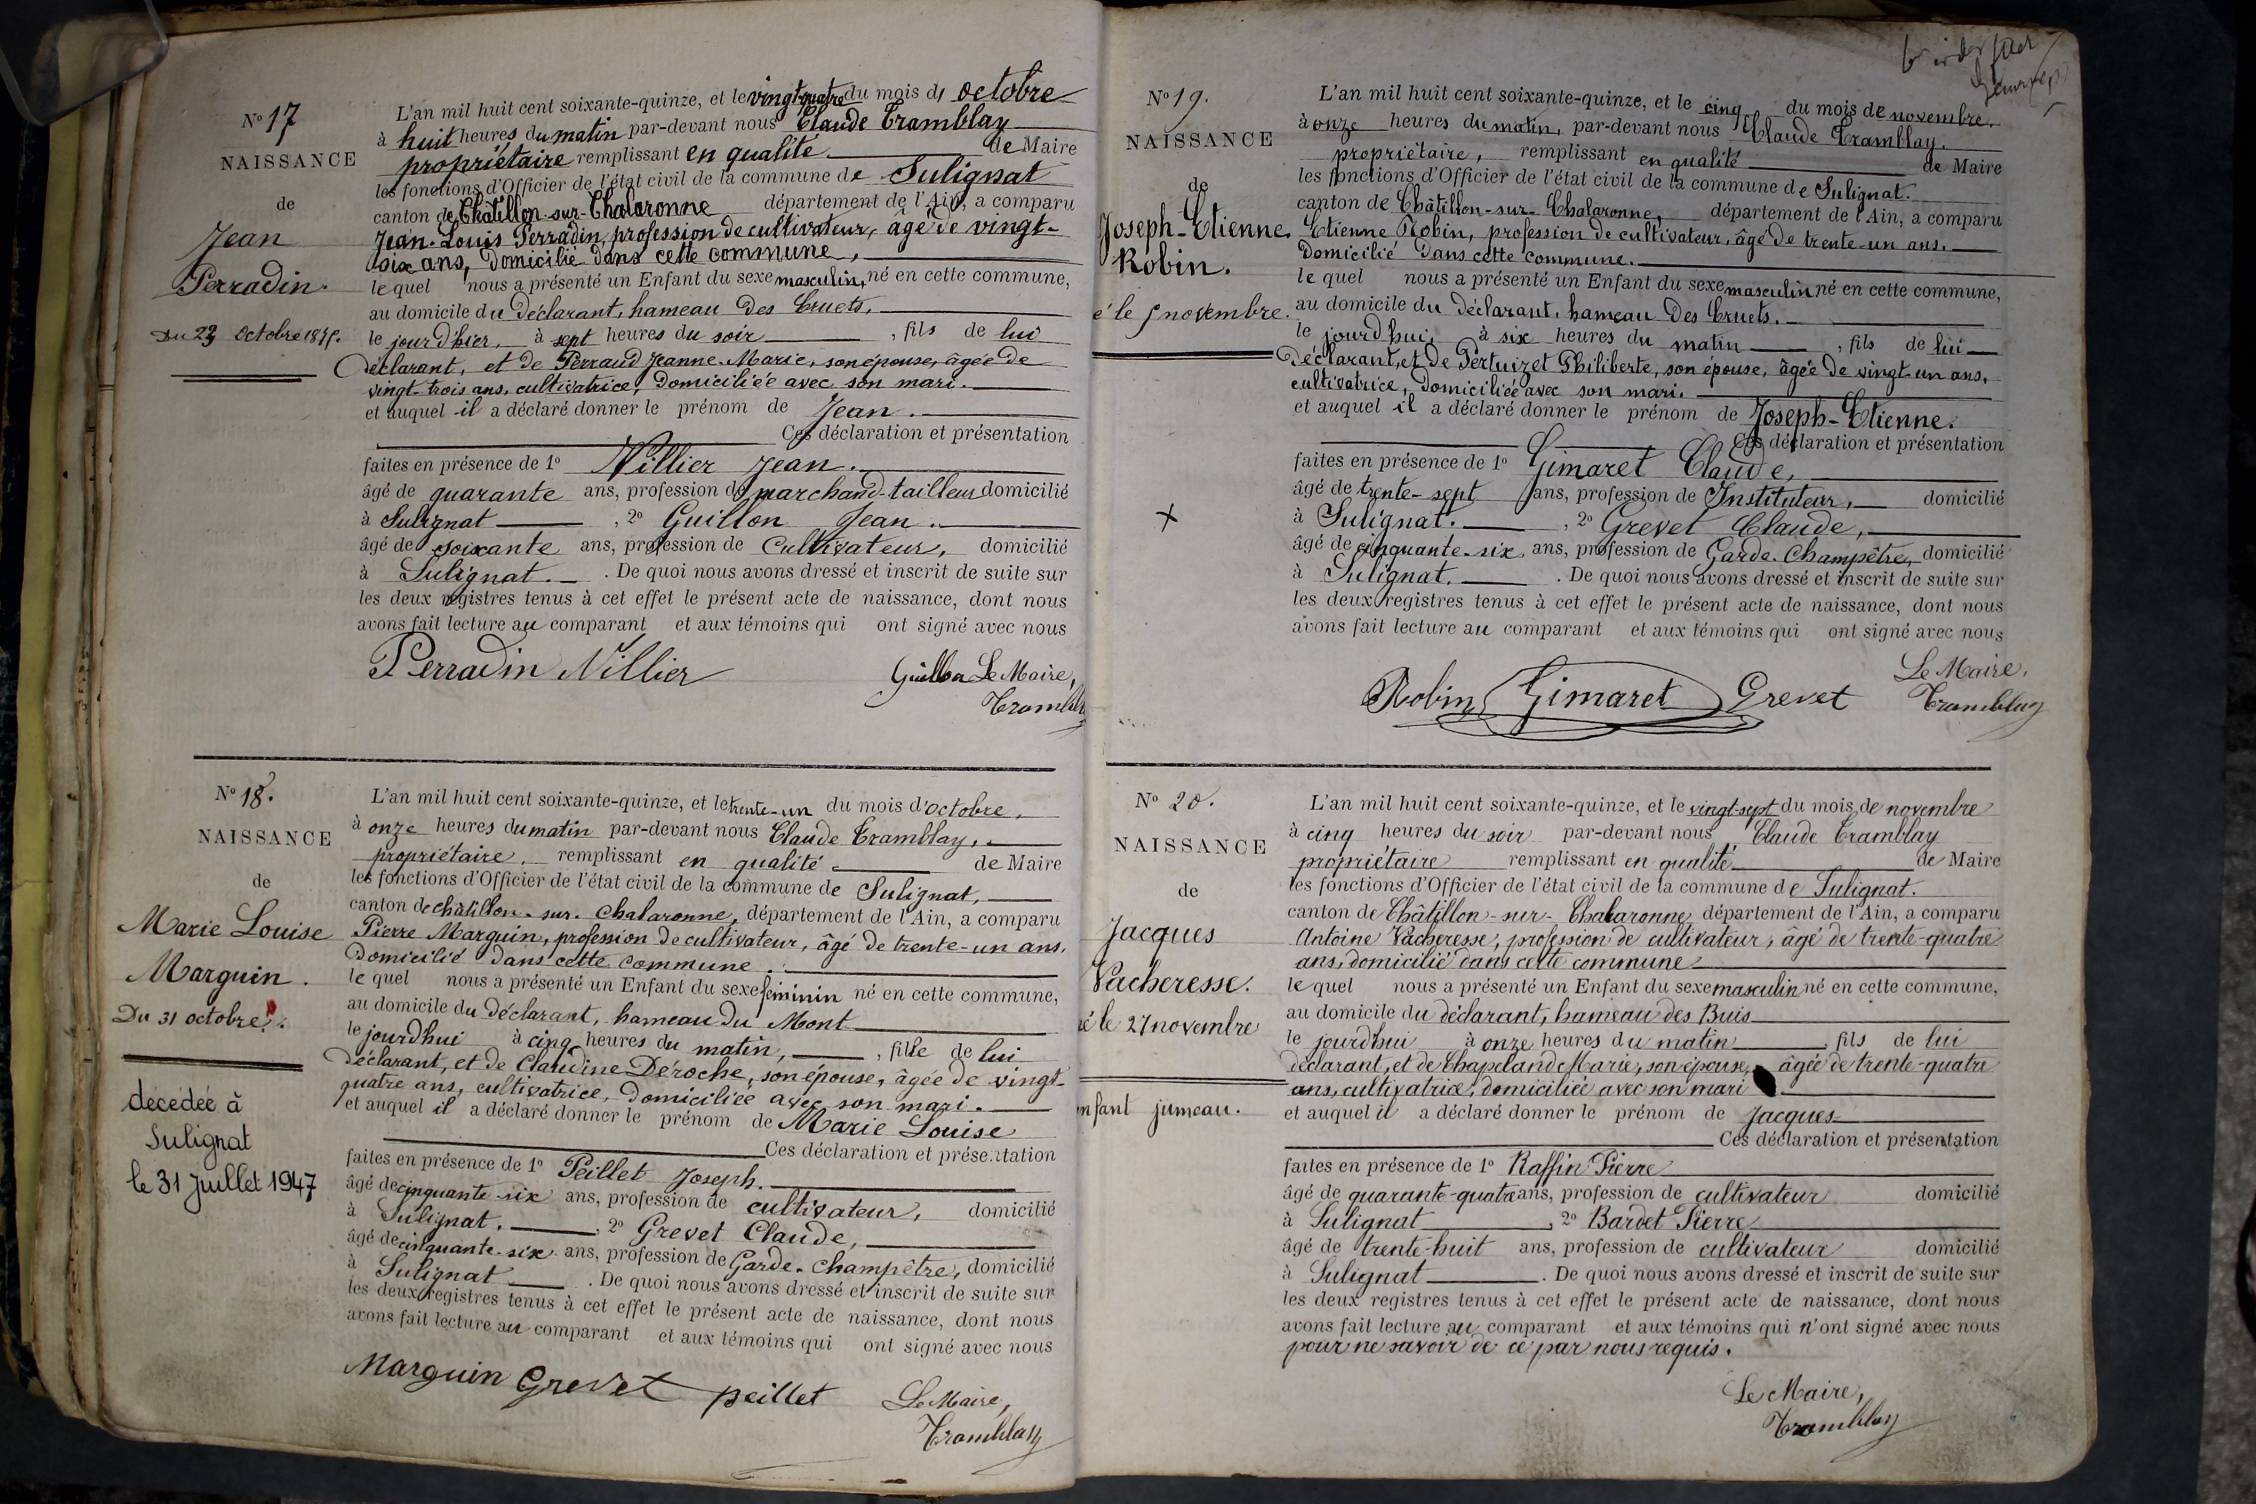 N° 17
NAISSANCE
de
Jean
Perradin.
Du 23 octobre 1875.
L'an mil huit cent soixante-quinze, et le vingt-quatre du mois d' octobre
à huit heures du matin par-devant nous Claude Tramblay
propriétaire remplissant en qualité de Maire
les fonctions d'Officier de l'état civil de la commune de Sulignat
canton de Châtillon-sur-Chalaronne département de l'Ain, a comparu
Jean-Louis Perradin, profession de cultivateur, âgé de vingt-
six ans, domicilié dans cette commune,
lequel nous a présenté un Enfant du sexe masculin, né en cette commune,
au domicile du déclarant, hameau des Cruets,
le jour d'hier, à sept heures du soir, fils de lui
déclarant, et de Perraud Jeanne-Marie, son épouse, âgée de
vingt-trois ans, cultivatrice, domiciliée avec son mari.
et auquel il a déclaré donner le prénom de Jean.
Ces déclaration et présentation
faites en présence de 1° Villier Jean.
âgé de quarante ans, profession de marchand-tailleur domicilié
à Sulignat, 2° Guillon Jean.
âgé de soixante ans, profession de Cultivateur, domicilié
à Sulignat. . De quoi nous avons dressé et inscrit de suite sur
les deux registres tenus à cet effet le présent acte de naissance, dont nous
avons fait lecture au comparant et aux témoins qui ont signé avec nous
Perradin Villier Guillon Le Maire,
Trambla
N° 18.
NAISSANCE
de
Marie Louise
Marguin.
Du 31 octobre.
décédée à
Sulignat
le 31 Juillet 1947
L'an mil huit cent soixante-quinze, et le trente-un du mois d'octobre,
à onze heures du matin par-devant nous Claude Tramblay,
propriétaire. remplissant en qualité de Maire
les fonctions d'Officier de l'état civil de la commune de Sulignat,
canton de châtillon-sur-chalaronne, département de l'Ain, a comparu
Pierre Marguin, profession de cultivateur, âgé de trente-un ans,
domicilié dans cette commune.
lequel nous a présenté un Enfant du sexe féminin né en cette commune,
au domicile du déclarant, hameau du Mont
le jourd'hui à cinq heures du matin, , fille de lui
déclarant, et de Claudine Déroche, son épouse, âgée de vingt-
quatre ans, cultivatrice, domiciliée avec son mari.
et auquel il a déclaré donner le prénom de Marie Louise
Ces déclaration et présentation
faites en présence de 1° Peillet Joseph.
âgé de cinquante-six ans, profession de cultivateur, domicilié
à Sulignat. , 2° Grevet Claude,
âgé de cinquante-six ans, profession de Garde-champêtre, domicilié
à Sulignat . De quoi nous avons dressé et inscrit de suite sur
les deux registres tenus à cet effet le présent acte de naissance, dont nous
avons fait lecture au comparant et aux témoins qui ont signé avec nous
Marguin Grevet peillet Le Maire,
Tramblay
N° 19.
NAISSANCE
de
Joseph-Etienne.
Robin.
é le 5 novembre.
L'an mil huit cent soixante-quinze, et le cinq du mois de novembre.
à onze heures du matin, par-devant nous Claude Tramblay.
propriétaire, remplissant en qualité de Maire
les fonctions d'Officier de l'état civil de la commune de Sulignat.
canton de Châtillon-sur-Chalaronne, département de l'Ain, a comparu
Etienne Robin, profession de cultivateur, âgé de trente-un ans.
domicilié dans cette commune.
lequel nous a présenté un Enfant du sexe masculin né en cette commune,
au domicile du déclarant, hameau des Cruets.
le jourd'hui, à six heures du matin , fils de lui
déclarant, et de Pertuizet Philiberte, son épouse, âgée de vingt-un ans,
cultivatrice, domiciliée avec son mari.
et auquel il a déclaré donner le prénom de Joseph-Etienne.
Ces déclaration et présentation
faites en présence de 1° Gimaret Claude,
âgé de trente-sept ans, profession de Instituteur, domicilié
à Sulignat. , 2° Grevet Claude,
âgé de cinquante-six ans, profession de Garde-Champêtre, domicilié
à Sulignat. . De quoi nous avons dressé et inscrit de suite sur
les deux registres tenus à cet effet le présent acte de naissance, dont nous
avons fait lecture au comparant et aux témoins qui ont signé avec nous
Le Maire,
Robin Gimaret Grevet Tramblay
N° 20.
NAISSANCE
de
Jacques
Vacheresse.
é le 27 novembre
nfant jumeau.
L'an mil huit cent soixante-quinze, et le vingt-sept du mois de novembre
à cinq heures du soir par-devant nous Claude Tramblay
propriétaire remplissant en qualité de Maire
les fonctions d'Officier de l'état civil de la commune de Sulignat.
canton de Châtillon-sur-Chalaronne département de l'Ain, a comparu
Antoine Vacheresse, profession de cultivateur, âgé de trente-quatre
ans, domicilié dans cette commune
lequel nous a présenté un Enfant du sexe masculin né en cette commune,
au domicile du déclarant, hameau des Buis
le jourd'hui à onze heures du matin , fils de lui
déclarant, et de Chapeland Marie, son épouse, âgée de trente-quatre
ans, cultivatrice, domiciliée avec son mari.
et auquel il a déclaré donner le prénom de Jacques
Ces déclaration et présentation
faites en présence de 1° Raffin Pierre
âgé de quarante-quatre ans, profession de cultivateur domicilié
à Sulignat , 2° Bardet Pierre
âgé de trente-huit ans, profession de cultivateur domicilié
à Sulignat . De quoi nous avons dressé et inscrit de suite sur
les deux registres tenus à cet effet le présent acte de naissance, dont nous
avons fait lecture au comparant et aux témoins qui n'ont signé avec nous
pour ne savoir de ce par nous requis.
Le Maire,
Tramblay